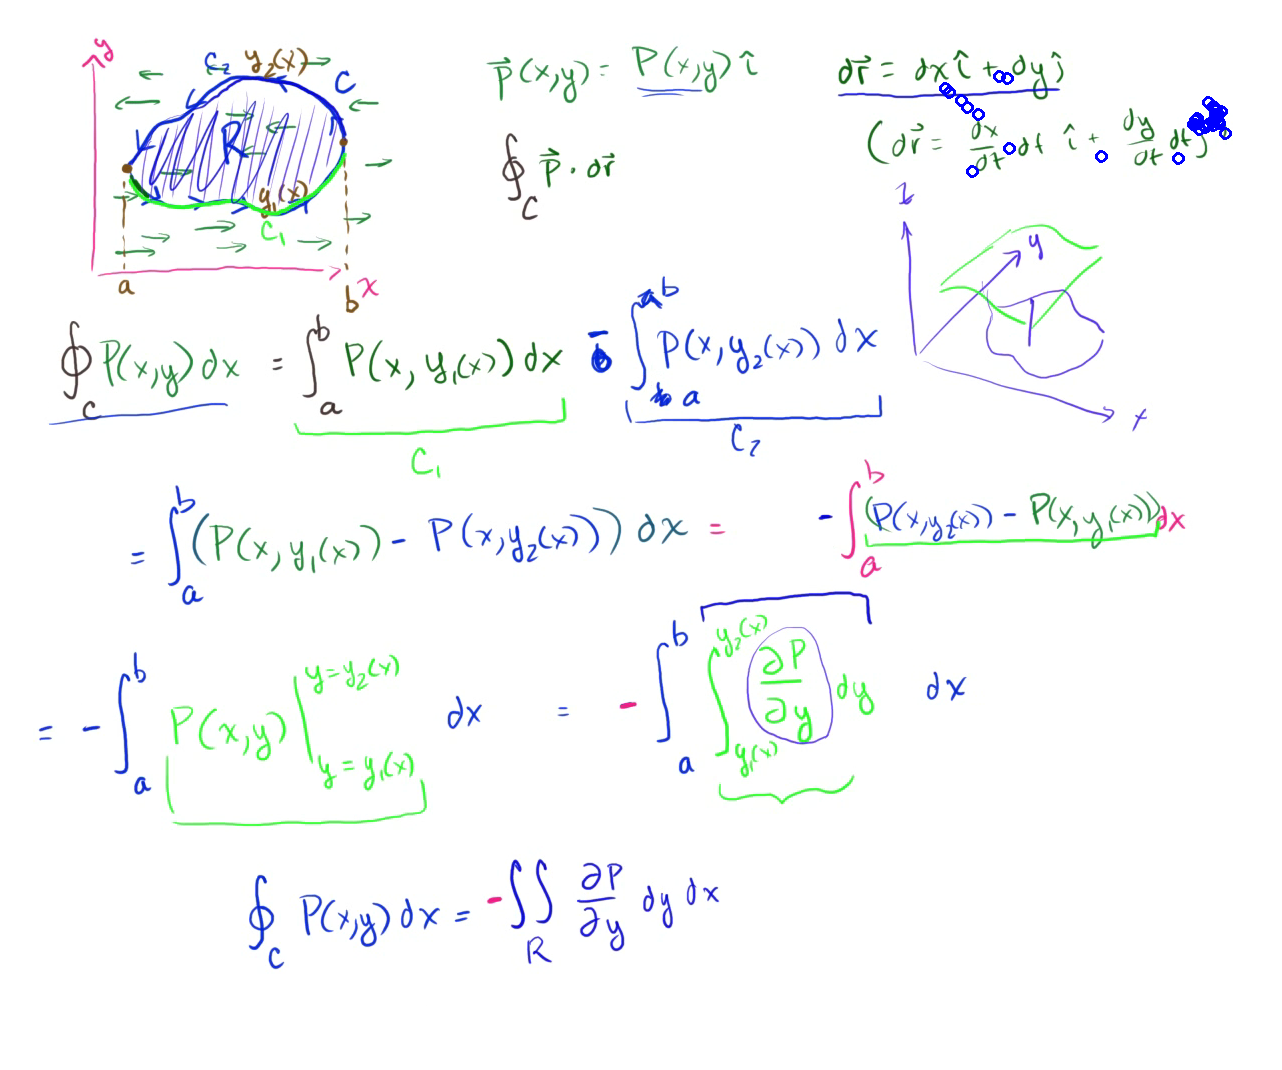 y
C₂ y₂(x)
C
R
y₁(x)
C₁
a b x
P⃗(x,y) = P(x,y) î
∮_C P⃗ · dr⃗
dr⃗ = dx î + dy ĵ
(dr⃗ = dx/dt dt î + dy/dt dt)
z
y
x
∮_C P(x,y) dx = ∫_a^b P(x, y₁(x)) dx - ∫_a^b P(x, y₂(x)) dx
C₁ C₂
= ∫_a^b (P(x, y₁(x)) - P(x, y₂(x))) dx = - ∫_a^b (P(x, y₂(x)) - P(x, y₁(x))) dx
= - ∫_a^b P(x,y) |_{y = y₁(x)}^{y = y₂(x)} dx = - ∫_a^b ∫_{y₁(x)}^{y₂(x)} ∂P/∂y dy dx
∮_C P(x,y) dx = - ∬_R ∂P/∂y dy dx